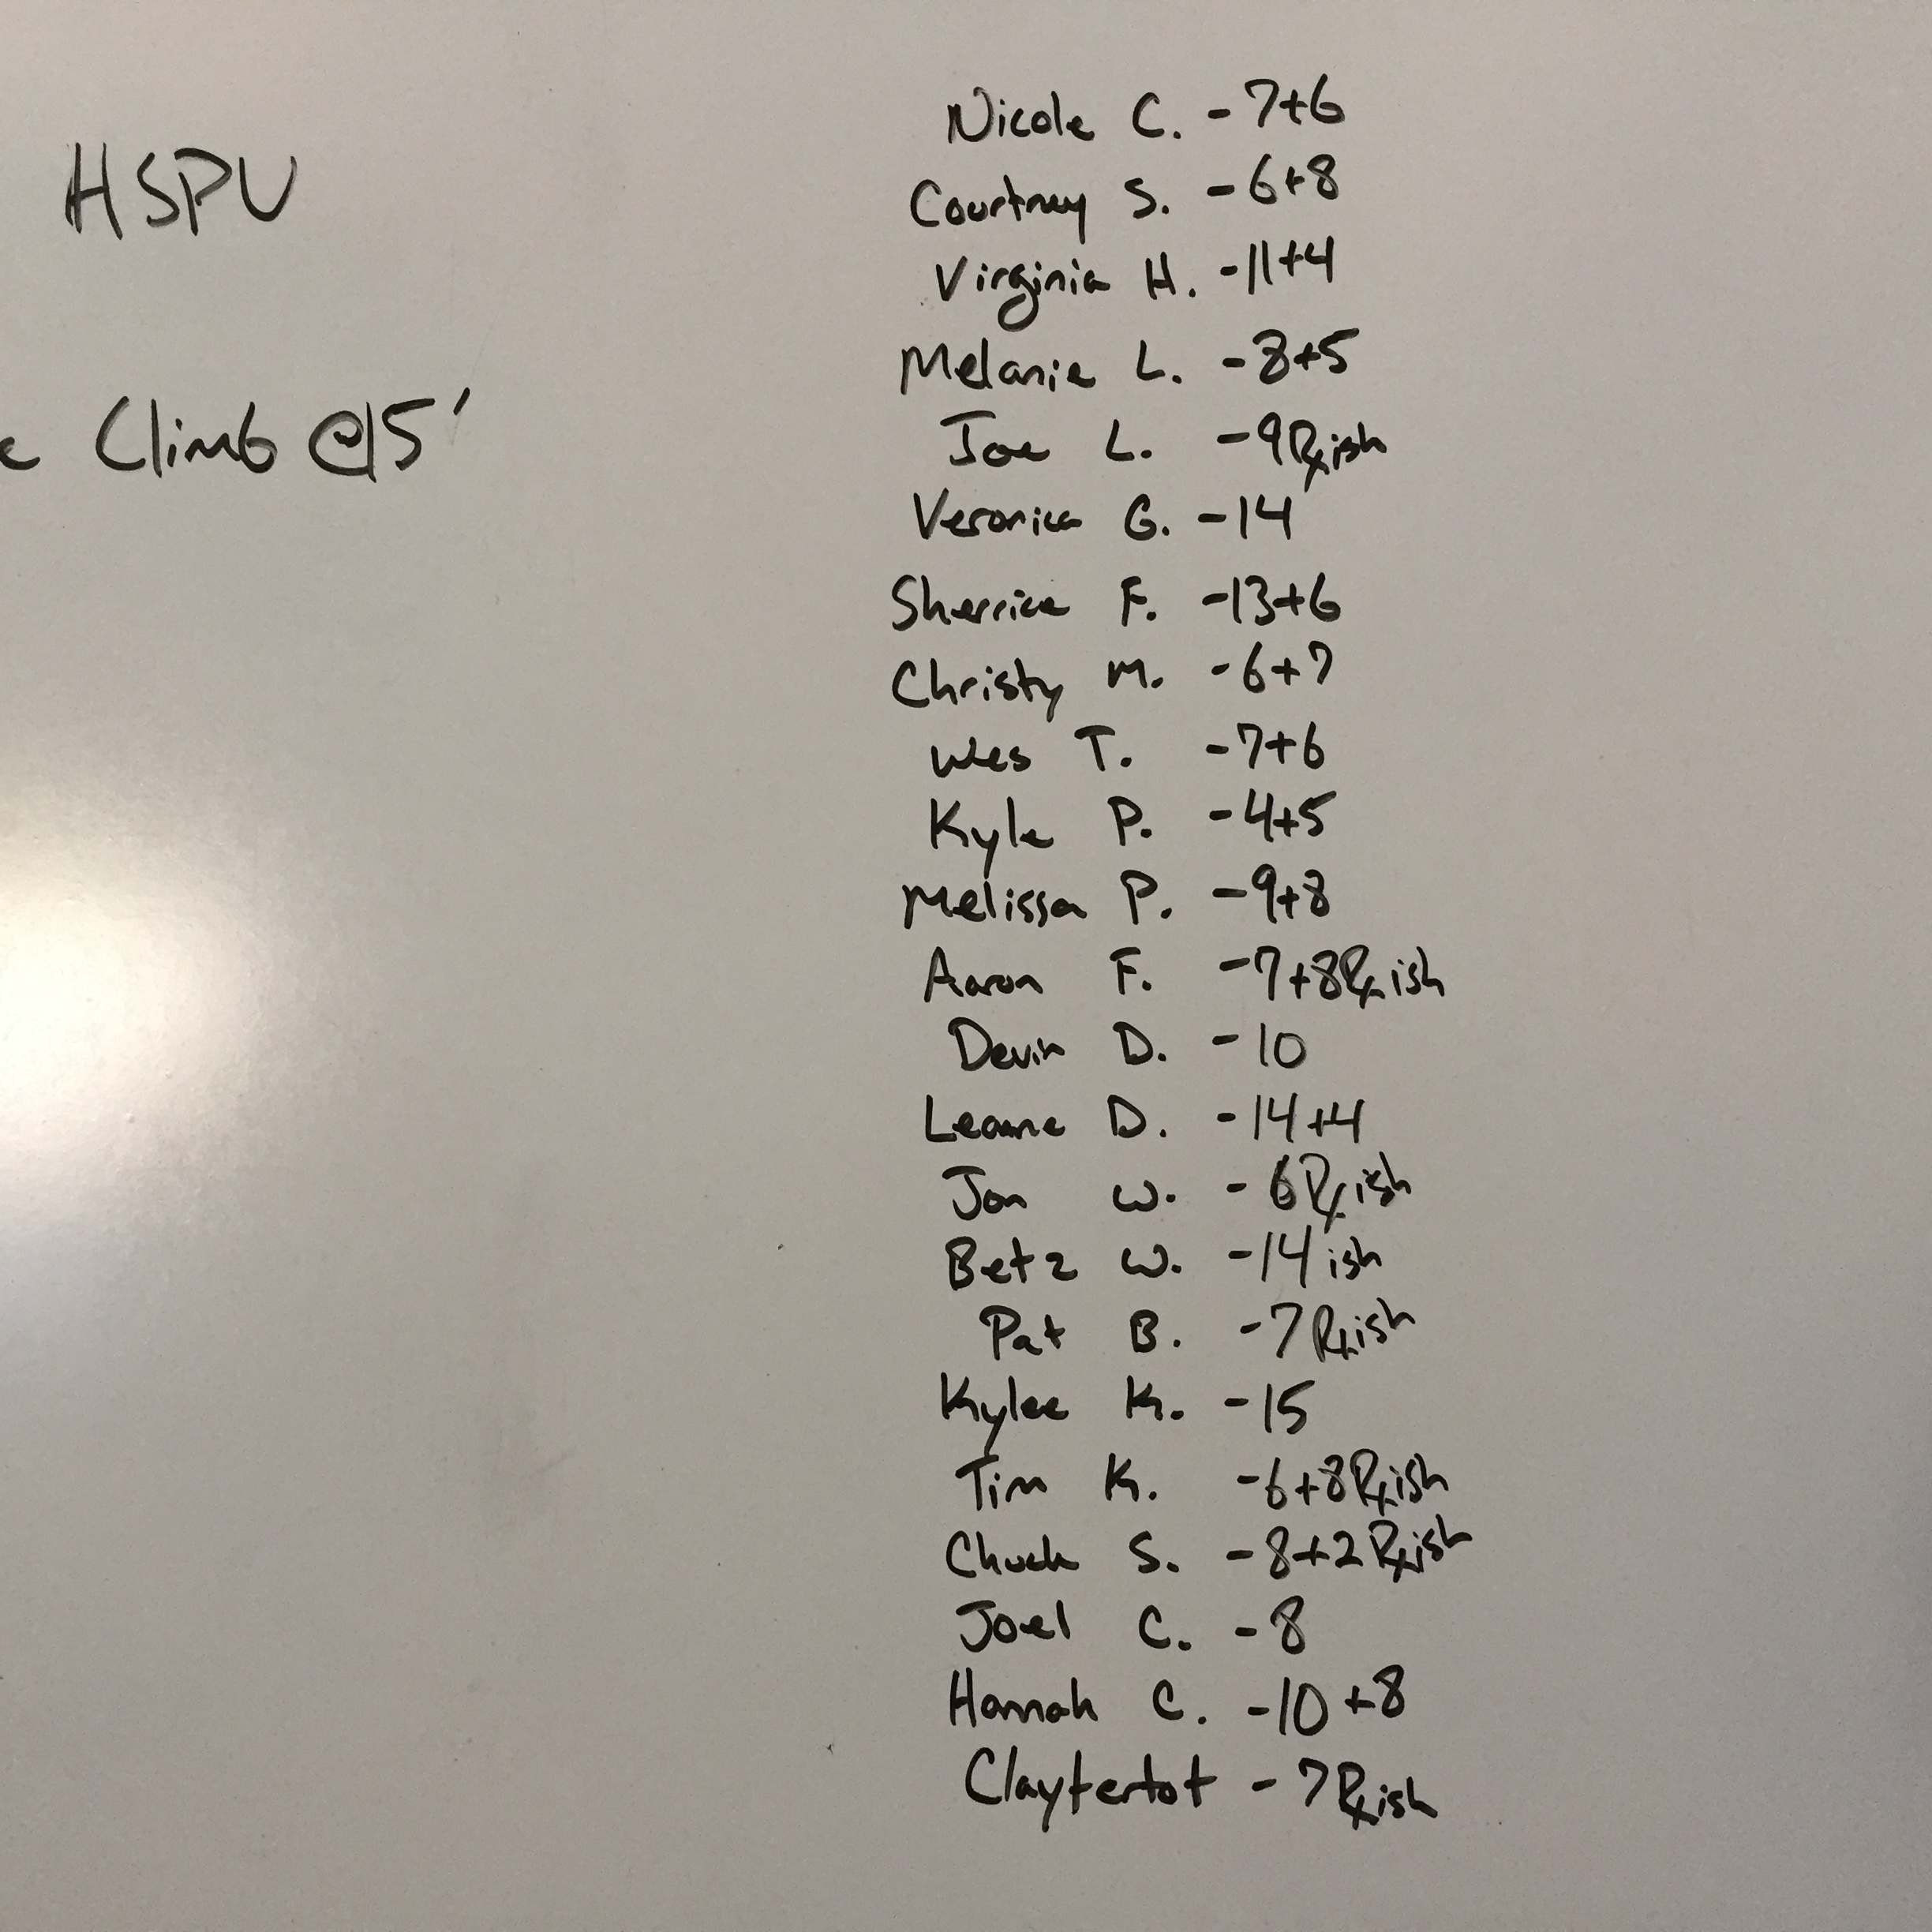 HSPU
Climb @15'
Nicole C. - 7+6
Courtney S. - 6+8
Virginia H. - 11+4
Melanie L. - 8+5
Joe L. - 9 Rxish
Veronica G. - 14
Sherrice F. - 13+6
Christy M. - 6+7
Wes T. - 7+6
Kyle P. - 4+5
Melissa P. - 9+8
Aaron F. - 7+8 Rxish
Devin D. - 10
Leanne D. - 14+4
Jon W. - 6 Rxish
Betz W. - 14 ish
Pat B. - 7 Rxish
Kylee K. - 15
Tim K. - 6+8 Rxish
Chuck S. - 8+2 Rxish
Joel C. - 8
Hannah C. - 10+8
Claytertot - 7 Rxish